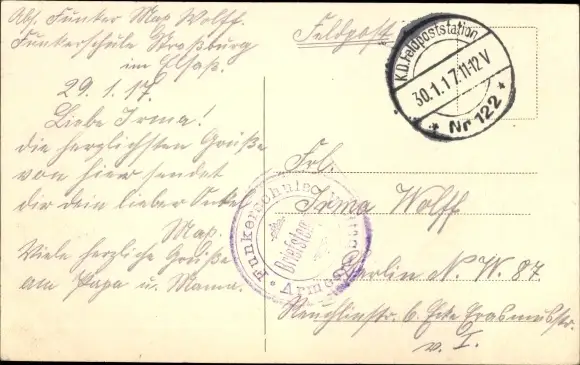 Abs. Funker Max Wolff.
Funkerschule Straßburg
im Elsaß.
29.1.17.
Liebe Irma!
die herzlichsten Grüße
von hier sendet
dir dein lieber Onkel
Max.
Viele herzliche Grüße
an Papa u. Mama.
Feldpost
K.D. Feldpoststation
30.1.17. 11-12 V
* Nr 122 *
Frl.
Irma Wolff
Berlin N.W. 87
Reuchlinstr. 6 Ecke Erasmusstr.
v. I.
Funkerschule
Briefstempel
Armee